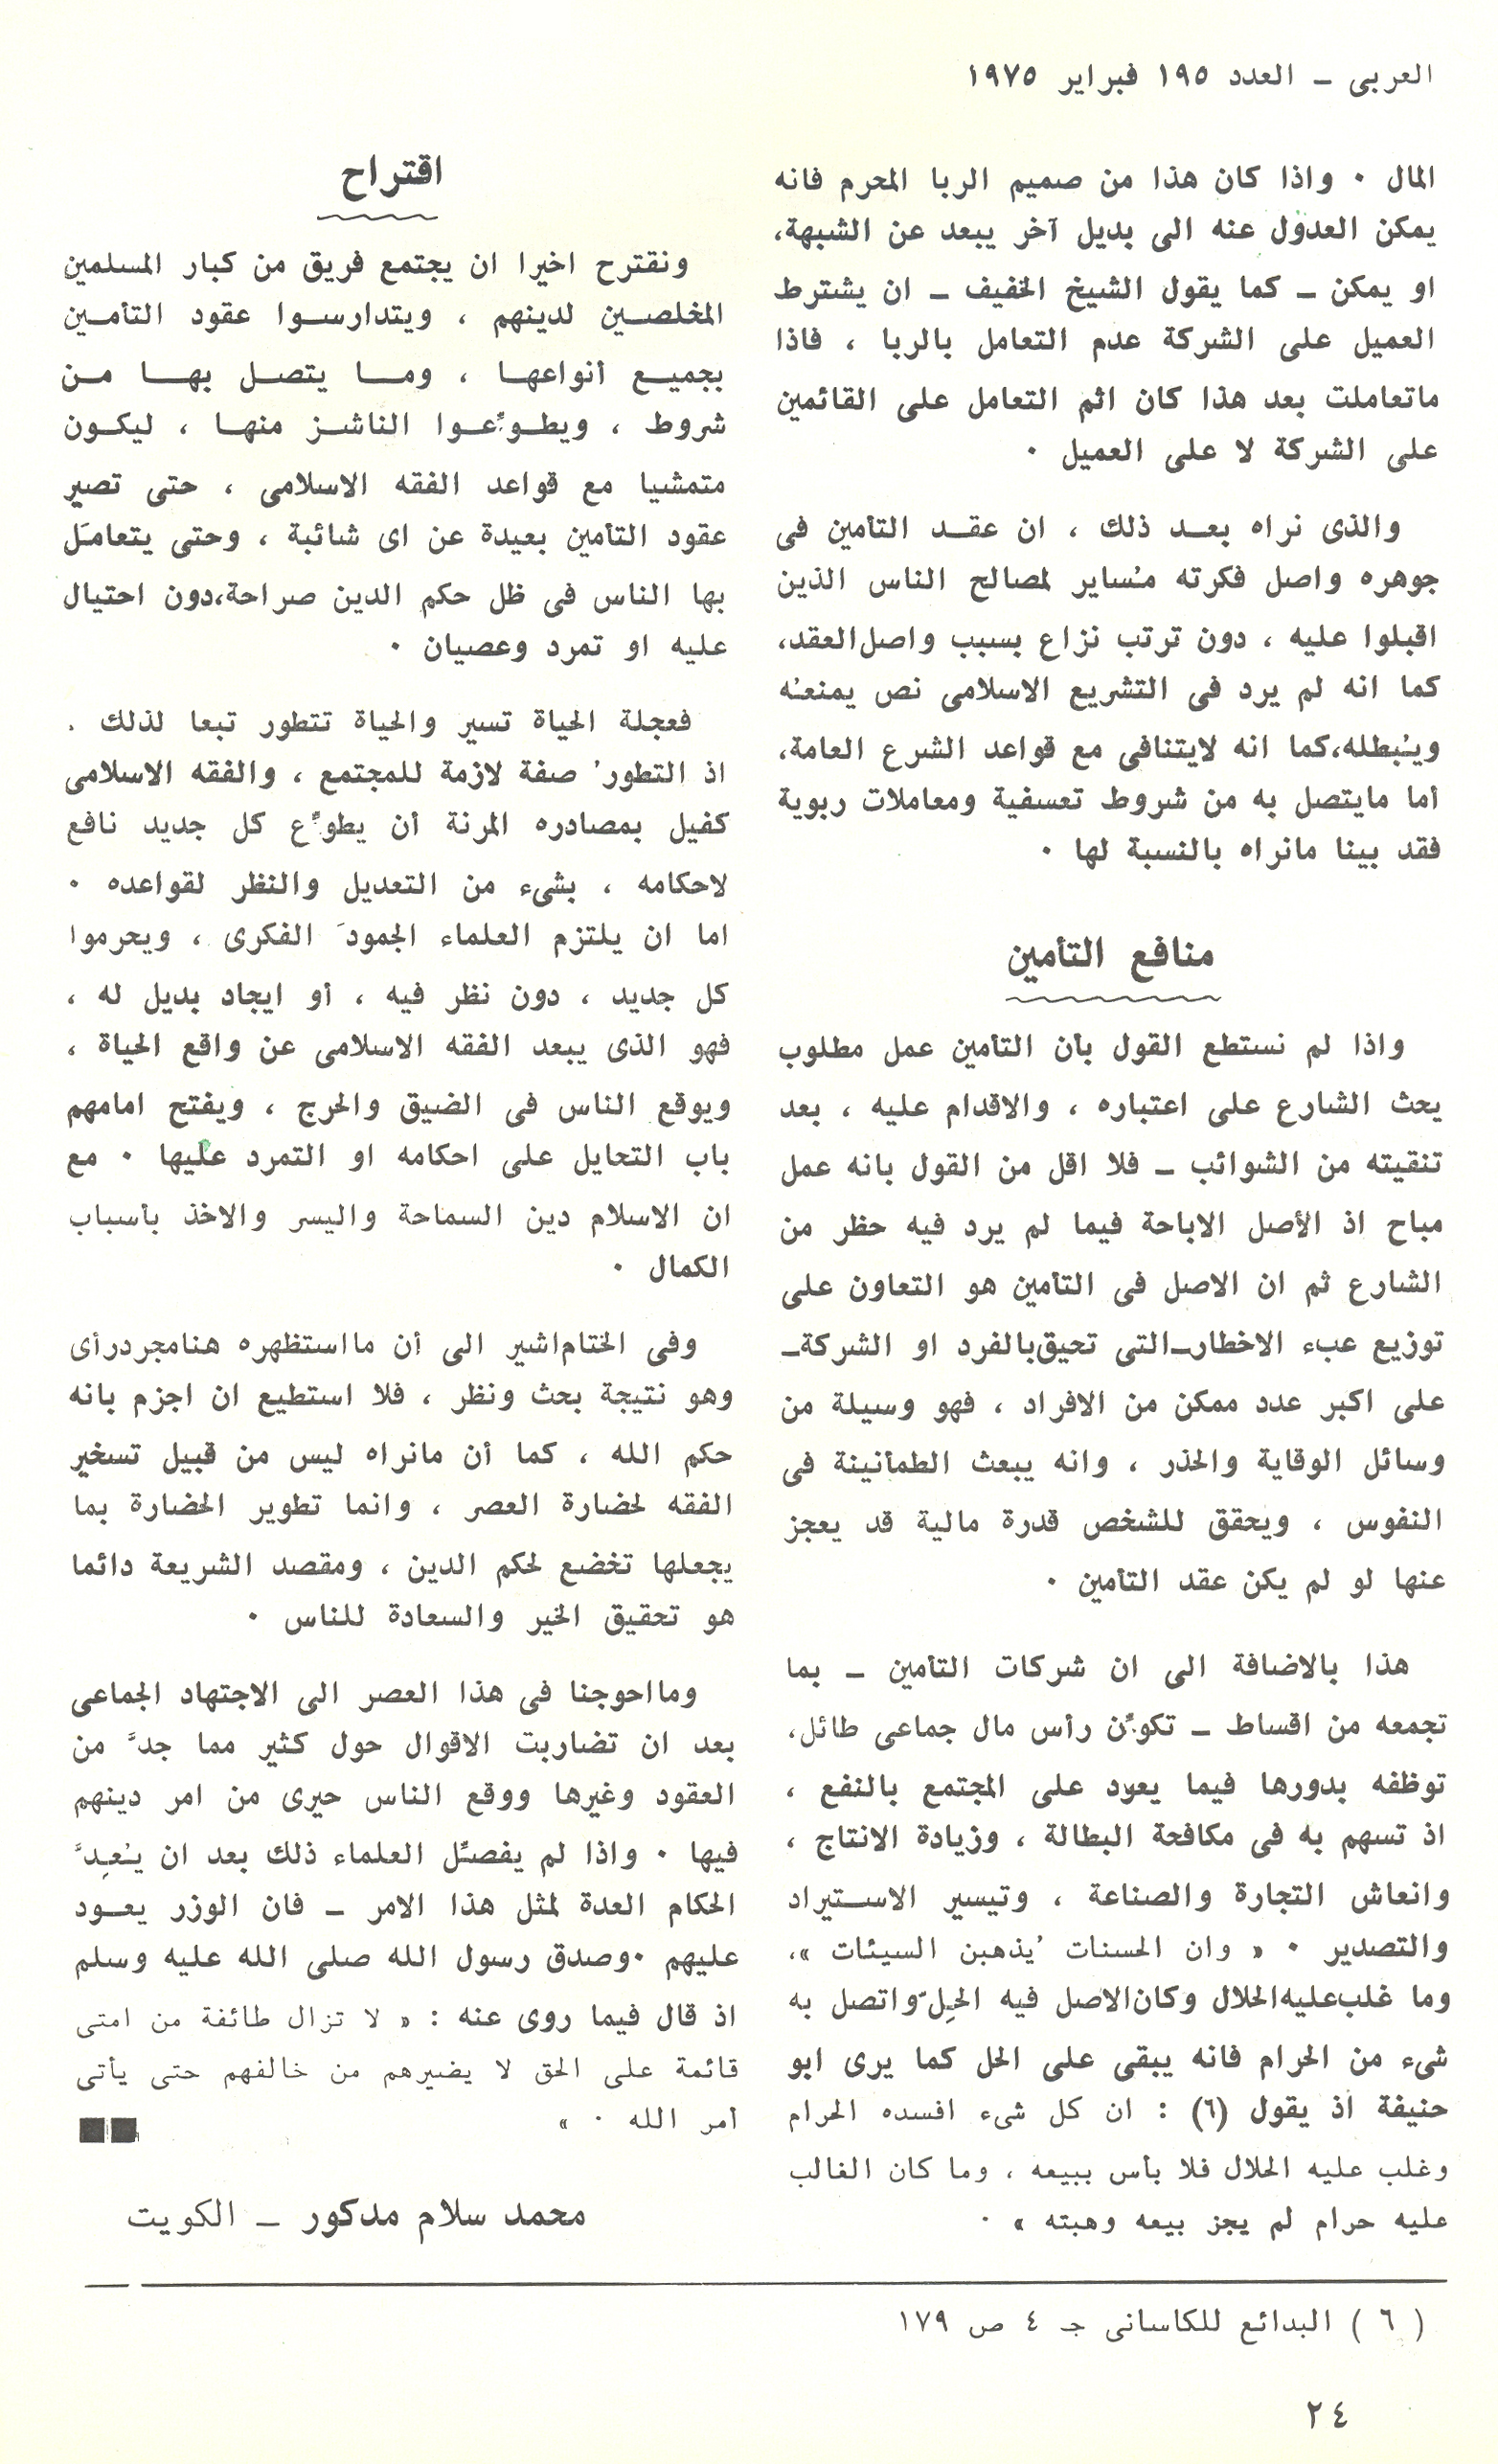 العربى ـ العدد ١٩٥ فبراير ١٩٧٥
المال ٠ واذا كان هذا من صميم الربا المحرم فانه
يمكن العدول عنه الى بديل آخر يبعد عن الشبهة،
او يمكن ـ كما يقول الشيخ الخفيف ـ ان يشترط
العميل على الشركة عدم التعامل بالربا ، فاذا
ماتعاملت بعد هذا كان اثم التعامل على القائمين
على الشركة لا على العميل ٠
والذى نراه بعـد ذلك ، ان عقـد التأمين فى
جوهره واصل فكرته مُساير لمصالح الناس الذين
اقبلوا عليه ، دون ترتب نزاع بسبب واصل العقد،
كما انه لم يرد فى التشريع الاسلامى نص يمنعُه
ويُبطله،كما انه لايتنافى مع قواعد الشرع العامة،
أما مايتصل به من شروط تعسفية ومعاملات ربوية
فقد بينا مانراه بالنسبة لها ٠
منافع التأمين
واذا لم نستطع القول بأن التأمين عمل مطلوب
يحث الشارع على اعتباره ، والاقدام عليه ، بعد
تنقيته من الشوائب ـ فلا اقل من القول بانه عمل
مباح اذ الأصل الاباحة فيما لم يرد فيه حظر من
الشارع ثم ان الاصل فى التأمين هو التعاون على
توزيع عبء الاخطارـالتى تحيق بالفرد او الشركةـ
على اكبر عدد ممكن من الافراد ، فهو وسيلة من
وسائل الوقاية والحذر ، وانه يبعث الطمأنينة فى
النفوس ، ويحقق للشخص قدرة مالية قد يعجز
عنها لو لم يكن عقد التأمين ٠
هذا بالاضافة الى ان شركات التأمين ـ بما
تجمعه من اقساط ـ تكوِّن رأس مال جماعى طائل،
توظفه بدورها فيما يعود على المجتمع بالنفع ،
اذ تسهم به فى مكافحة البطالة ، وزيادة الانتاج ،
وانعاش التجارة والصناعة ، وتيسير الاسـتيراد
والتصدير ٠ « وان الحسنات يُذهبن السيئات »،
وما غلب عليه الحلال وكان الاصل فيه الحِلّ واتصل به
شىء من الحرام فانه يبقى على الحل كما يرى ابو
حنيفة اذ يقول (٦) : ان كل شىء افسده الحرام
وغلب عليه الحلال فلا بأس ببيعه ، وما كان الغالب
عليه حرام لم يجز بيعه وهبته » ٠
اقتراح
ونقترح اخيرا ان يجتمع فريق من كبار المسلمين
المخلصـين لدينهم ، ويتدارسـوا عقود التأمـين
بجميـع أنواعهـا ، ومـا يتصـل بهـا مـن
شروط ، ويطـوِّعـوا الناشـز منهـا ، ليكـون
متمشيا مع قواعد الفقه الاسلامى ، حتى تصير
عقود التأمين بعيدة عن اى شائبة ، وحتى يتعاملَ
بها الناس فى ظل حكم الدين صراحة،دون احتيال
عليه او تمرد وعصيان ٠
فعجلة الحياة تسير والحياة تتطور تبعا لذلك .
اذ التطورُ صفة لازمة للمجتمع ، والفقه الاسلامى
كفيل بمصادره المرنة أن يطوِّع كل جديد نافع
لاحكامه ، بشىء من التعديل والنظر لقواعده ٠
اما ان يلتزم العلماء الجمودَ الفكرى ، ويحرموا
كل جديد ، دون نظر فيه ، أو ايجاد بديل له ،
فهو الذى يبعد الفقه الاسلامى عن واقع الحياة ،
ويوقع الناس فى الضيق والحرج ، ويفتح امامهم
باب التحايل على احكامه او التمرد عليها ٠ مع
ان الاسلام دين السماحة واليسر والاخذ بأسباب
الكمال ٠
وفى الختام اشير الى أن ما استظهره هنا مجرد رأى
وهو نتيجة بحث ونظر ، فلا استطيع ان اجزم بانه
حكم الله ، كما أن مانراه ليس من قبيل تسخير
الفقه لحضارة العصر ، وانما تطوير الحضارة بما
يجعلها تخضع لحكم الدين ، ومقصد الشريعة دائما
هو تحقيق الخير والسعادة للناس ٠
وما احوجنا فى هذا العصر الى الاجتهاد الجماعى
بعد ان تضاربت الاقوال حول كثير مما جدَّ من
العقود وغيرها ووقع الناس حيرى من امر دينهم
فيها ٠ واذا لم يفصِّل العلماء ذلك بعد ان يُعِدَّ
الحكام العدة لمثل هذا الامر ـ فان الوزر يعـود
عليهم ٠وصدق رسول الله صلى الله عليه وسلم
اذ قال فيما روى عنه : « لا تزال طائفة من امتى
قائمة على الحق لا يضيرهم من خالفهم حتى يأتى
أمر الله ٠ »
محمد سلام مدكور ـ الكويت
( ٦ ) البدائع للكاسانى جـ ٤ ص ١٧٩
٢٤